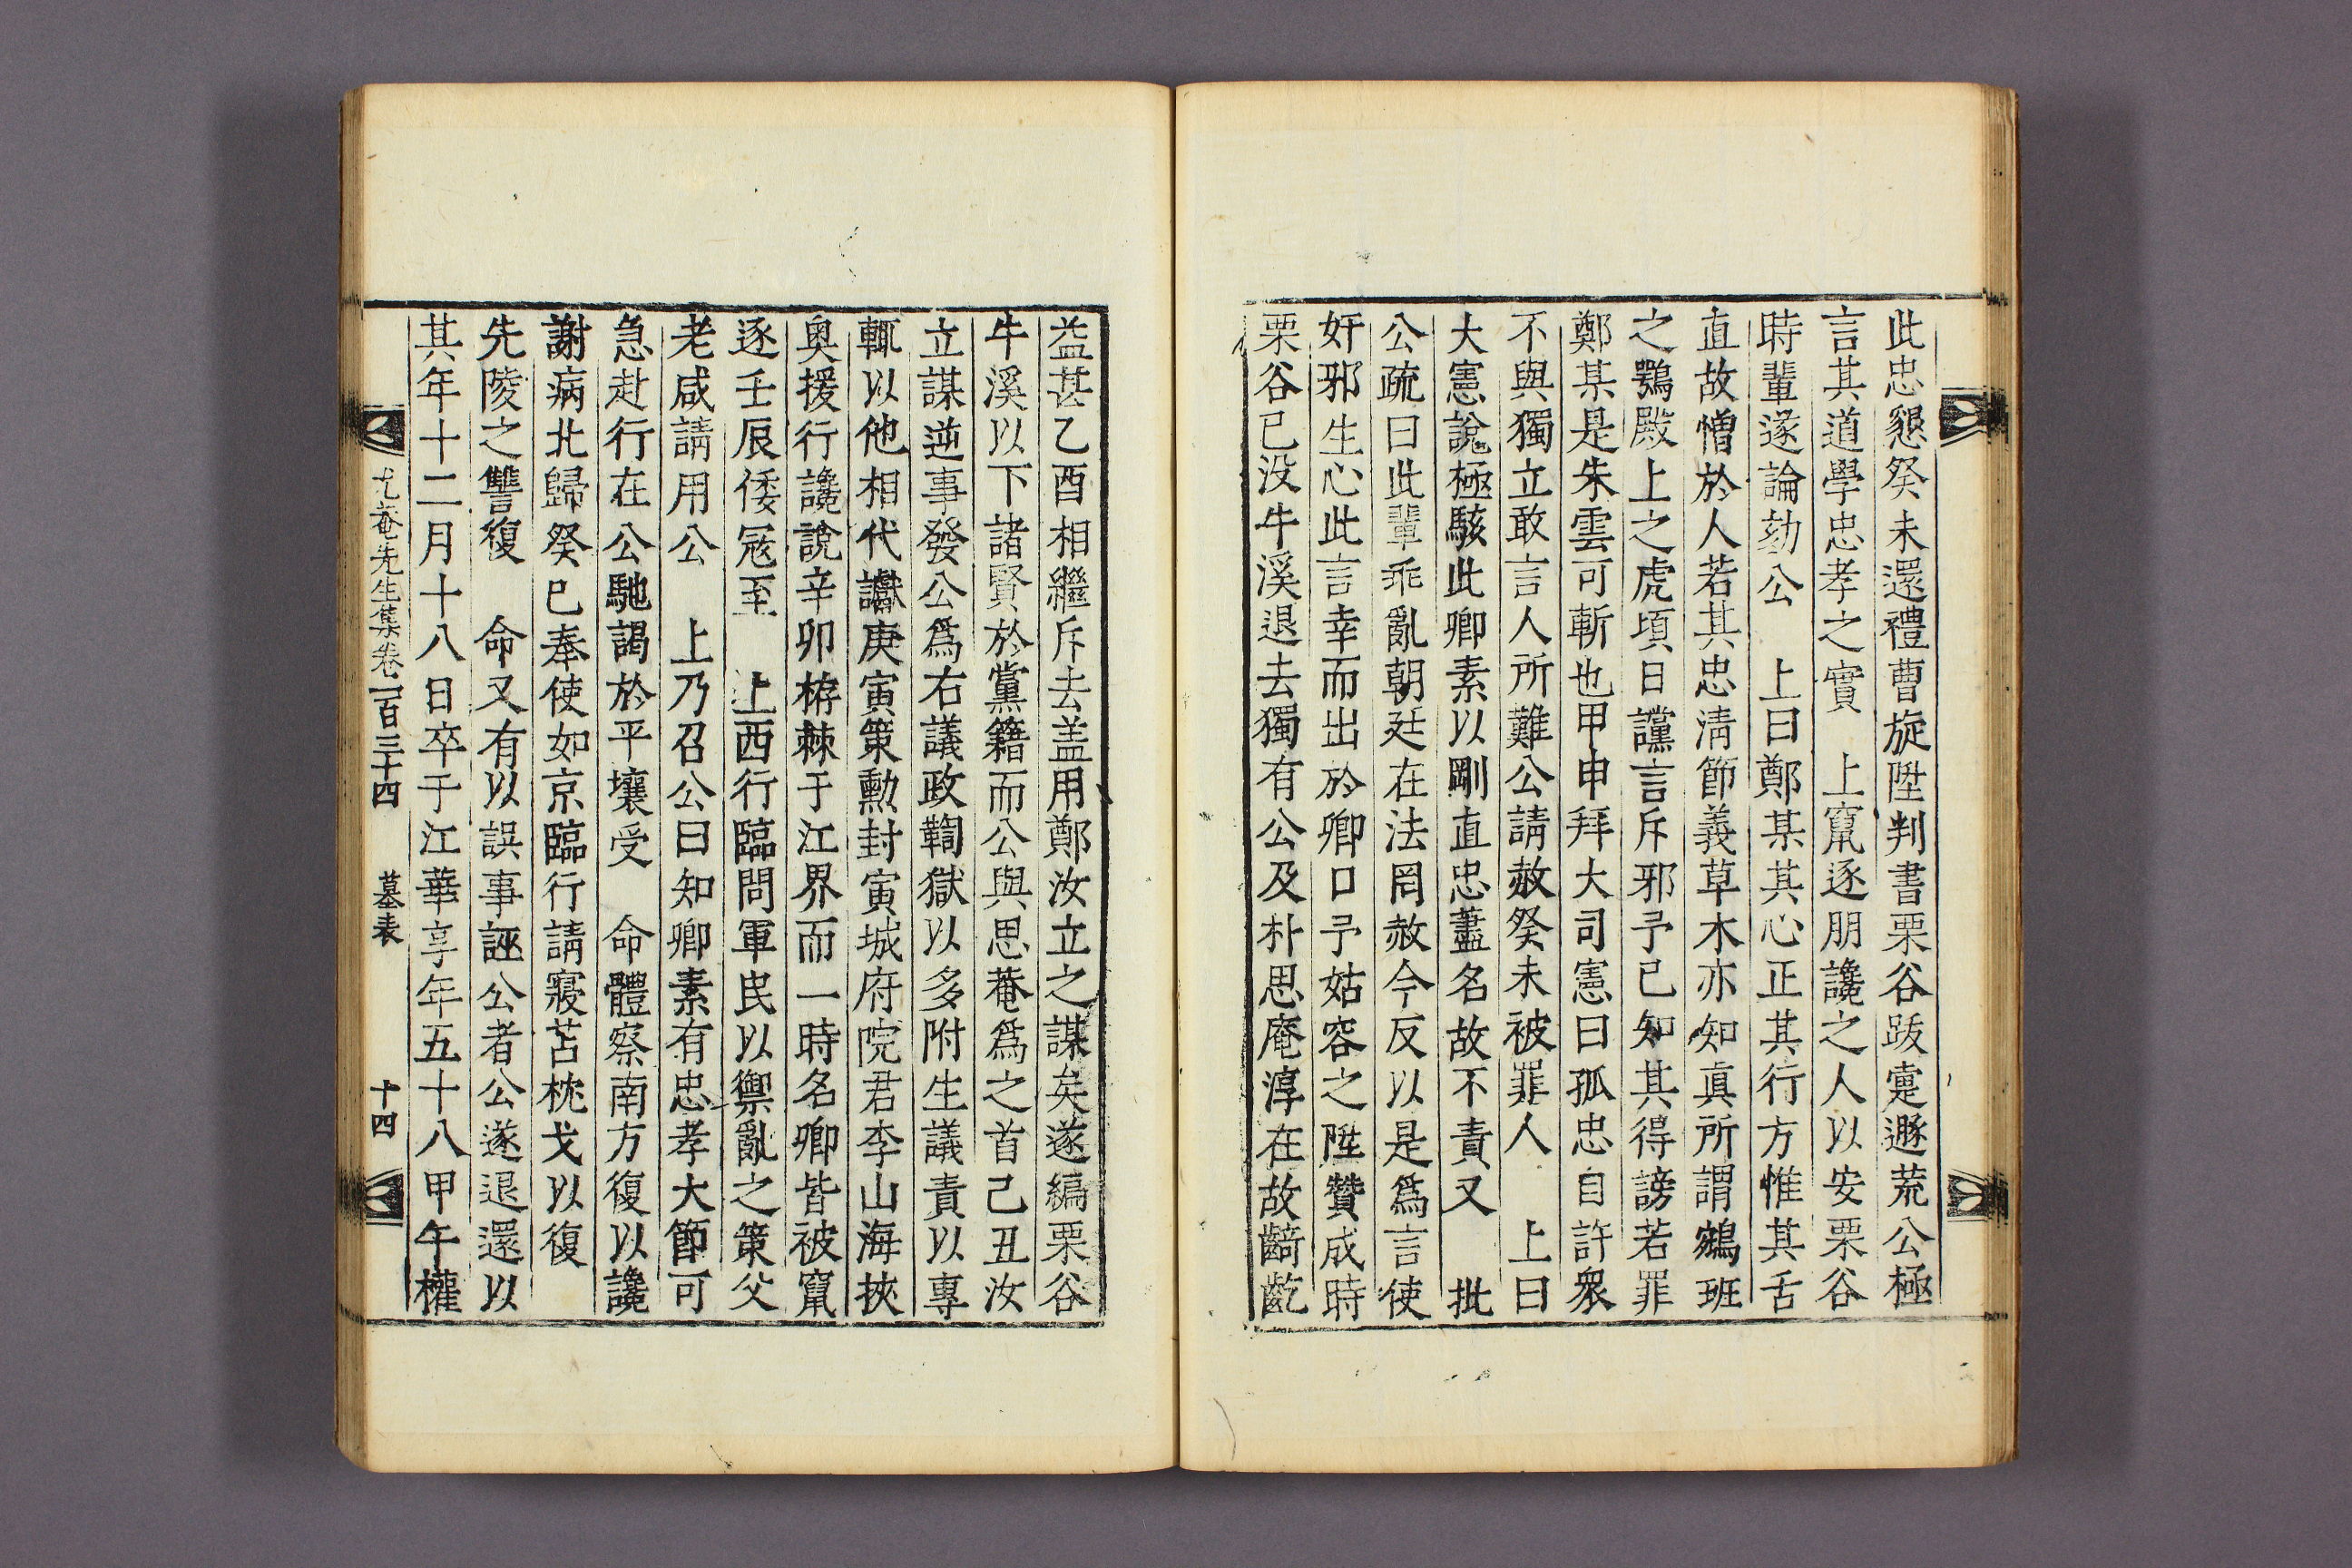 此忠懇癸未還禮曹旋陞判書栗谷跋疐遯荒公極
言其道學忠孝之實　上竄逐朋讒之人以安栗谷
時輩遂論劾公　上曰鄭某其心正其行方惟其舌
直故憎於人若其忠淸節義草木亦知眞所謂鵷班
之鶚殿上之虎頃日讜言斥邪予已知其得謗若罪
鄭某是朱雲可斬也甲申拜大司憲曰孤忠自許衆
不與獨立敢言人所難公請赦癸未被罪人　上曰
大憲說極駭此卿素以剛直忠藎名故不責又　批
公疏曰此輩乖亂朝廷在法罔赦今反以是爲言使
奸邪生心此言幸而出於卿口予姑容之陞贊成時
栗谷已没牛溪退去獨有公及朴思庵淳在故齮齕
益甚乙酉相繼斥去盖用鄭汝立之謀矣遂編栗谷
牛溪以下諸賢於黨籍而公與思菴爲之首己丑汝
立謀逆事發公爲右議政鞫獄以多附生議責以專
輒以他相代讞庚寅策勳封寅城府院君李山海挾
奥援行讒說辛卯栫棘于江界而一時名卿皆被竄
逐壬辰倭冦至　上西行臨問軍民以禦亂之策父
老咸請用公　上乃召公曰知卿素有忠孝大節可
急赴行在公馳謁於平壤受　命體察南方復以讒
謝病北歸癸巳奉使如京臨行請寢苫枕戈以復
先陵之讐復　命又有以誤事誣公者公遂退還以
其年十二月十八日卒于江華享年五十八甲午權
尤菴先生集卷一百三十四　墓表　十四